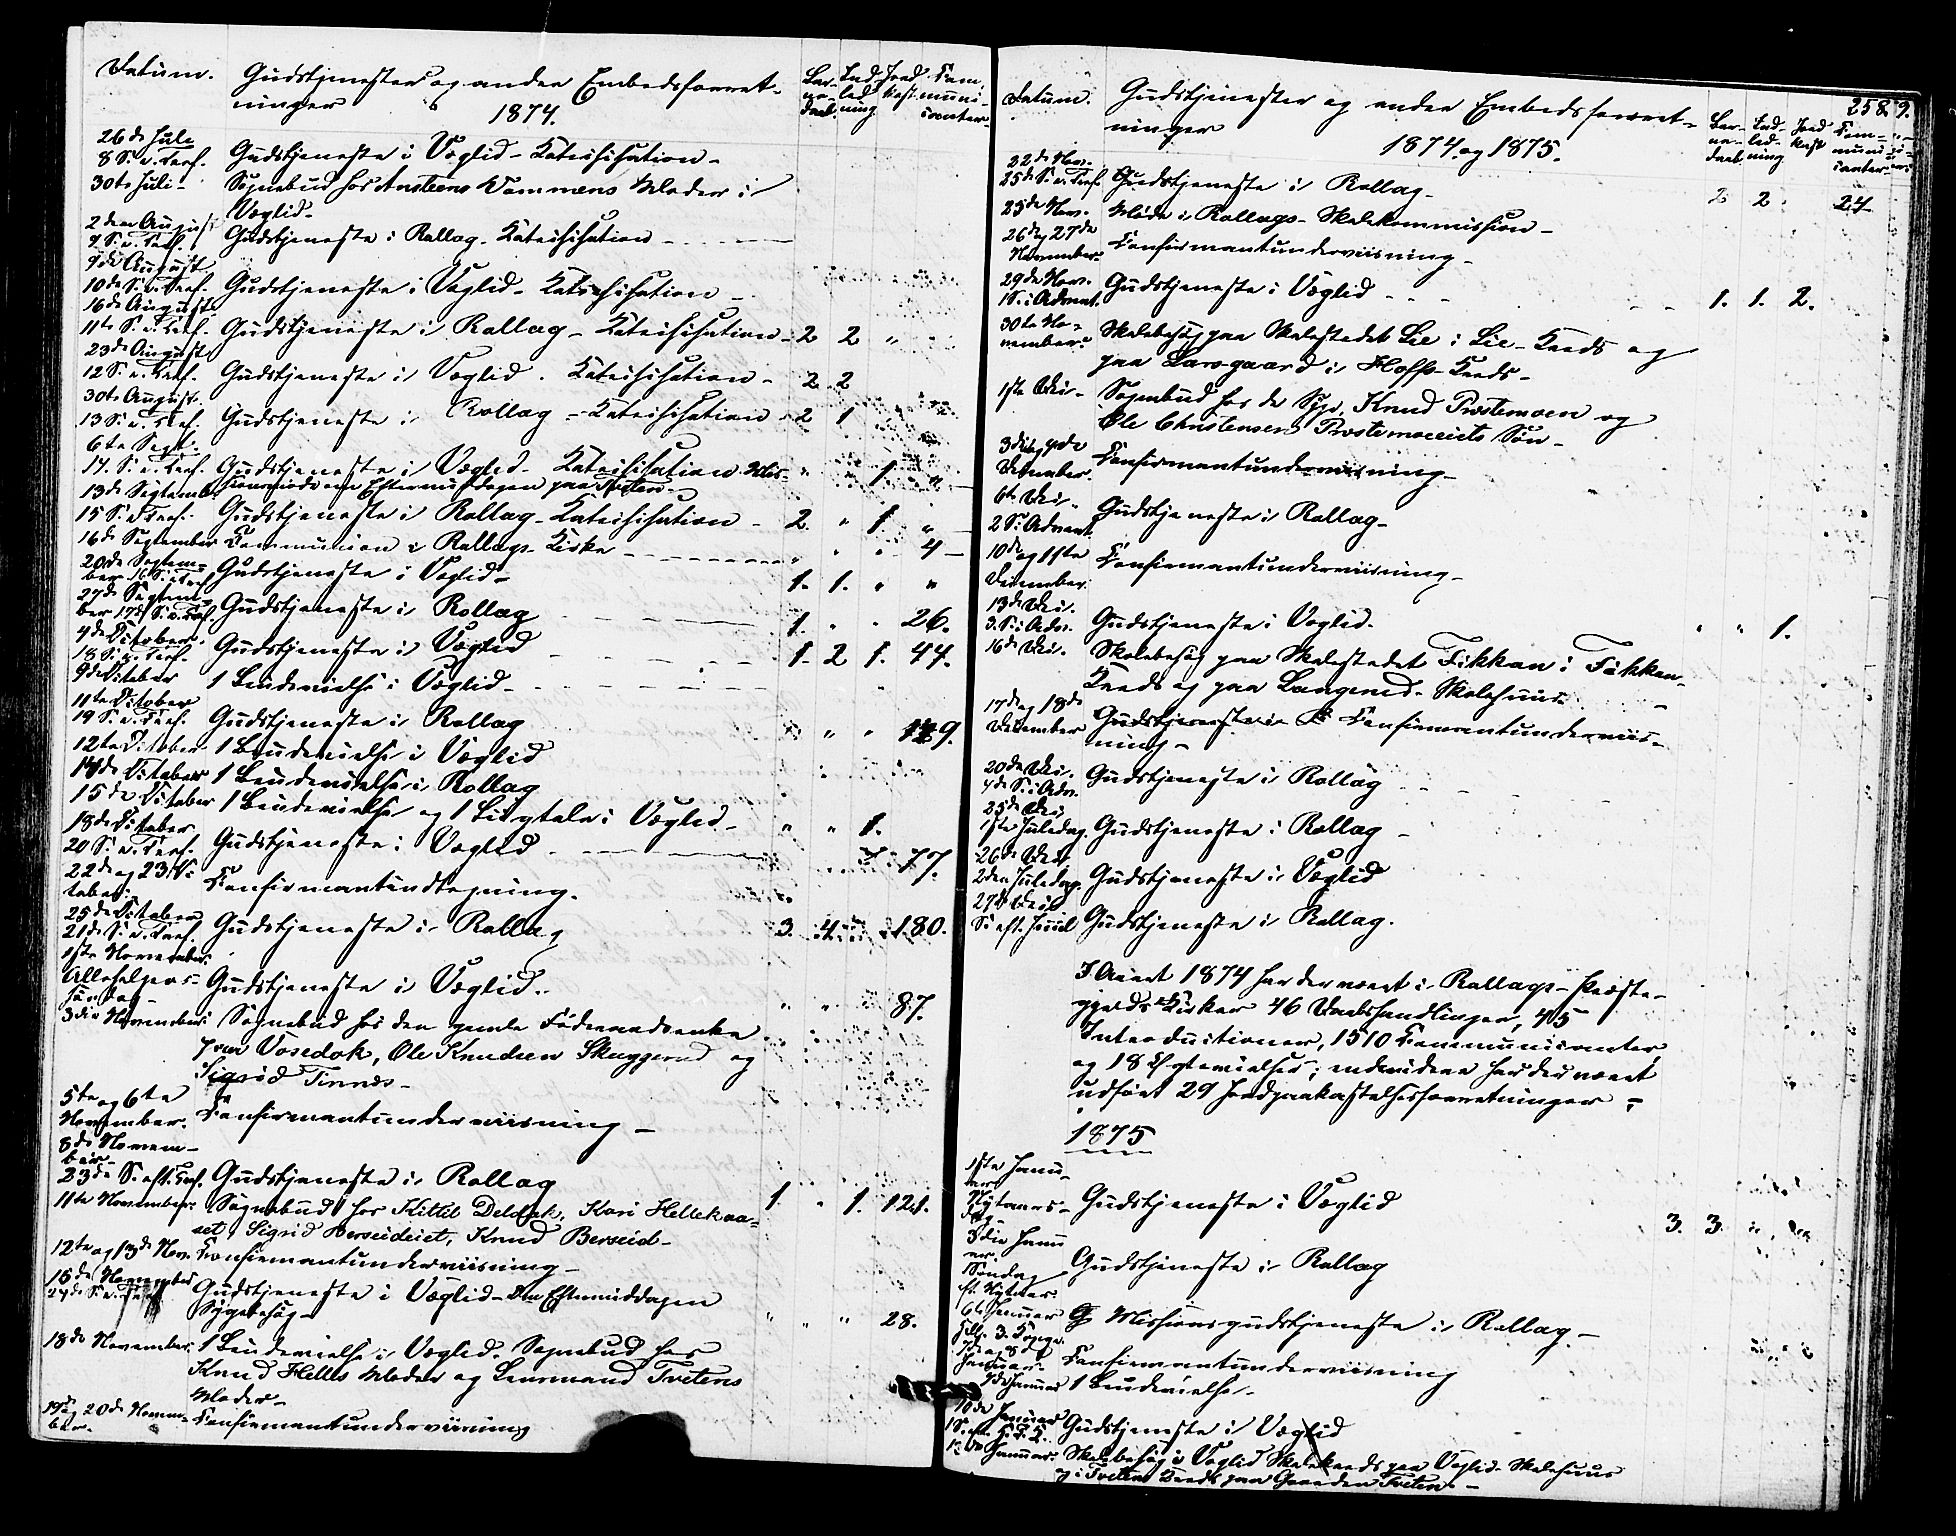 Datum. Gudstjenester og andre Embedsforret-
ninger
1874.
Bar- Ind- Jord- Com-
ne- led- kast. muni-
daab. ning canter.
26de Juli
8 S. e. Tref. Gudstjeneste i Veglid - Katechisation -
30te Juli - Sognebud hos Ansteens Vammens Moder i
Veglid -
2den August
9 S. e. Tref. Gudstjeneste i Rollag - Katechisation -
9de August
10de S. e. Tref. Gudstjeneste i Veglid - Katechisation -
16de August
11te S. e. Tref. Gudstjeneste i Rollag - Katechisation - 2 2 "
23de August
12 S. e. Tref. Gudstjeneste i Veglid - Katechisation - 2 2
30te August
13 S. e. Tref. Gudstjeneste i Rollag - Katechisation - 2 1
6te Sept.
14. S. e. Tref. Gudstjeneste i Veglid - Katechisation. Mis- " " 1 "
sionsmøde om Eftermiddagen paa Tveten -
13de September
15 S. e. Tref. Gudstjeneste i Rollag - Katechisation - 2 " 1 "
16de September Communion i Rollags Kirke - " " " 4 -
20de Septem-
ber 16 S. e. Tref. Gudstjeneste i Veglid - 1. 1. " "
27de Septem-
ber 17de S. e. Tref. Gudstjeneste i Rollag 1. " " 26.
4de October
18 S. e. Tref. Gudstjeneste i Veglid 1. 2 1. 44.
9de October 1 Brudevielse i Veglid -
11te October
19 S. e. Tref. Gudstjeneste i Rollag " " " 149.
12te October 1 Brudevielse i Veglid
14de October 1 Brudevielse i Rollag
15de October 1 Brudevielse og 1 Liigtale i Veglid - " " 1.
18de October
20 S. e. Tref. Gudstjeneste i Veglid 77.
22de og 23 Oc-
tober: Confirmantindtegning.
25de October
21de S. e. Tref. Gudstjeneste i Rollag 3. 4 180.
1ste November
Allehelgens-
søndag - Gudstjeneste i Veglid. " " 87.
3die November: Sognebud hos den gamle Føderaadsenke
Vosedok, Ole Knudsen Skuggerud og
Sigrid Tinnes -
5te og 6te
November. Confirmantunderviisning -
8de Novem-
ber
23de S. eft. Tref. Gudstjeneste i Rollag 1 " 1. 121.
11te November: Sognebud hos Kittil Deldok, Kari Hellekaa-
set, Sigrid Berseideiet, Knud Berseid -
12te og 13de Nov. Confirmantunderviisning -
15de November
24de S. e. Tref. Gudstjeneste i Veglid - Om Eftermiddagen
Sygebesøg - " " " 28.
18de November. 1 Brudevielse i Veglid. Sognebud hos
Knud Helles Moder og Lensmand Tvetens
Moder -
19 og 20de Novem-
ber. Confirmantunderviisning
258. 9.
Datum. Gudstjenester og andre Embedsforret-
ninger
1874 og 1875.
Bar- Ind- Jord- Com-
ne- led- kast muni-
daab. ning canter
22de Nov.
25de S. e. Tref. Gudstjeneste i Rollag - 2 2 24
25de Nov. Møde i Rollags Skolekommission -
26de og 27de
November. Confirmantunderviisning -
29de Nov.
1 S. i Advent. Gudstjeneste i Veglid 1. 1. 2.
30te No-
vember: Skolebesøg paa Skolestedet Lie i Lie-Kreds og
paa Larsgaard i Hoffs Kreds -
1ste Dec. - Sognebud hos de Syge, Knud Prestemoen og
Ole Christensen Prestemoeiets Søn -
3die og 4de
December. Confirmantunderviisning -
6te Dec.
2 S. i Advent Gudstjeneste i Rollag -
10de og 11te
December. Confirmantunderviisning -
13de Dec.
3. S. i Adv. Gudstjeneste i Veglid. " " 1.
16de Dec. Skolebesøg paa Skolestedet Fikkan i Fikkan-
Kreds og paa Langerud-Skolehuus
17de og 18de
December Gudstjeneste i R Confirmantunderviis-
ning -
20de Dec.
4de S. i Adv. Gudstjeneste i Rollag
25de Dec.
1ste Juledag. Gudstjeneste i Rollag -
26de Dec.
2den Juledag. Gudstjeneste i Veglid
27de Dec.
S. eft. Juul Gudstjeneste i Rollag.
I Aaret 1874 har der været i Rollags Præste-
gjelds Kirker 46 Daabshandlinger, 45
Introductioner, 1510 Communicanter
og 18 Ægtevielser; endvidere har der været
udført 29 Jordpaakastelsesforretninger -
1875
1ste Janu-
ar
Nytaars-
dag - Gudstjeneste i Veglid 3. 3. " "
3die Janu-
ar
Søndag
ft. Nytaar. Gudstjeneste i Rollag
6te Januar
Hell. 3 Konger. Missionsgudstjeneste i Rollag -
7de og 8de
Januar. Confirmantunderviisning
9de Januar 1 Brudevielse.
10de Januar
1 S. eft. H. 3. K. Gudstjeneste i Veglid
Januar: Skolebesøg i Veglid Skolekreds paa Veglid-Skolehuus
og i Tveten Kreds paa Gaarden Tveten -